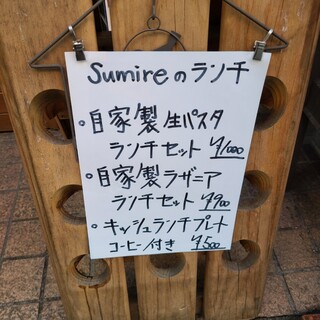 Sumireのランチ
・自家製生パスタ
ランチセット ¥1000
・自家製ラザニア
ランチセット ¥900
・キッシュランチプレート
コーヒー付き ¥500